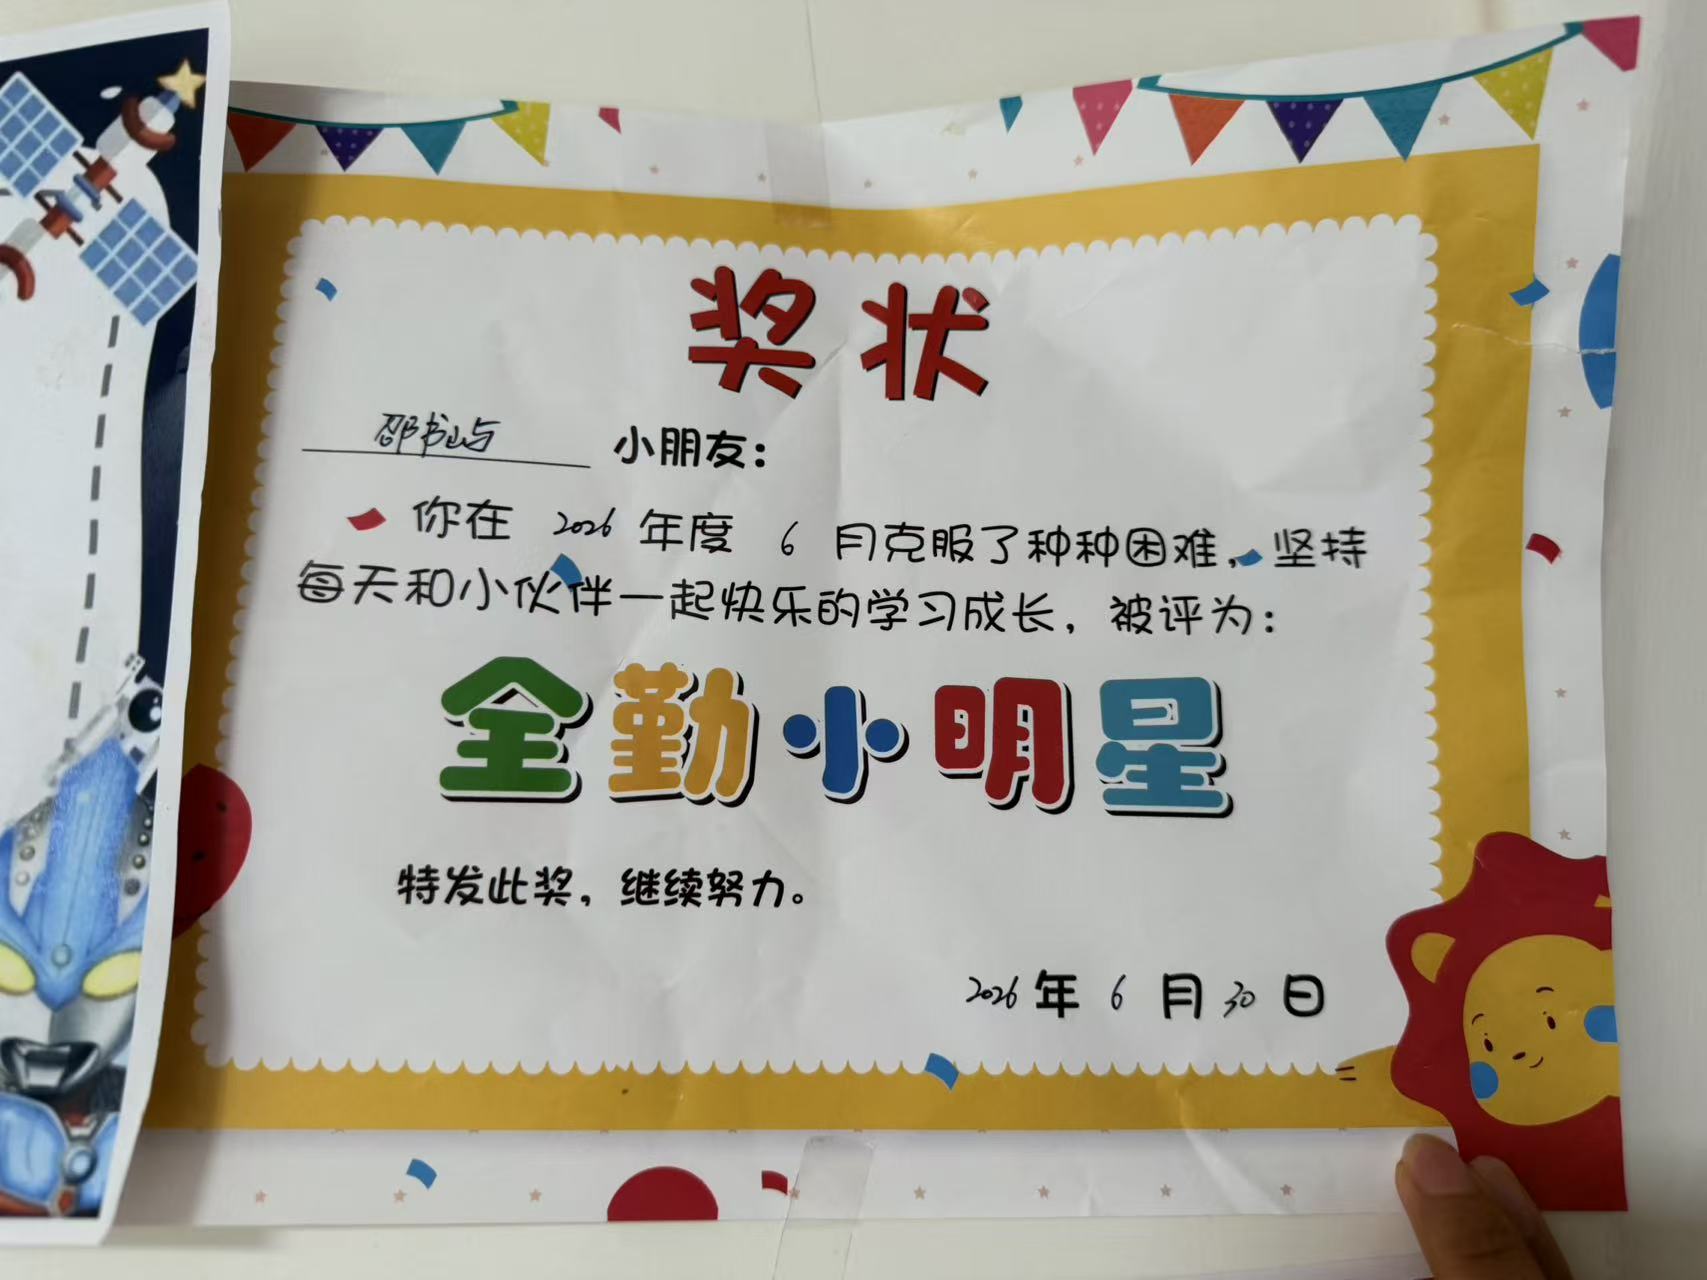 奖状
邵书屿 小朋友：
你在 2026 年度 6 月克服了种种困难，坚持
每天和小伙伴一起快乐的学习成长，被评为：
全勤小明星
特发此奖，继续努力。
2026 年 6 月 30 日